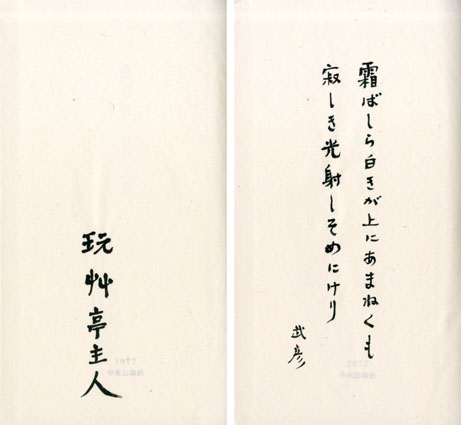 玩艸亭主人
1977
中央公論社
霜ばしら白きが上にあまねくも
寂しき光射しそめにけり
武彦
1977
中央公論社